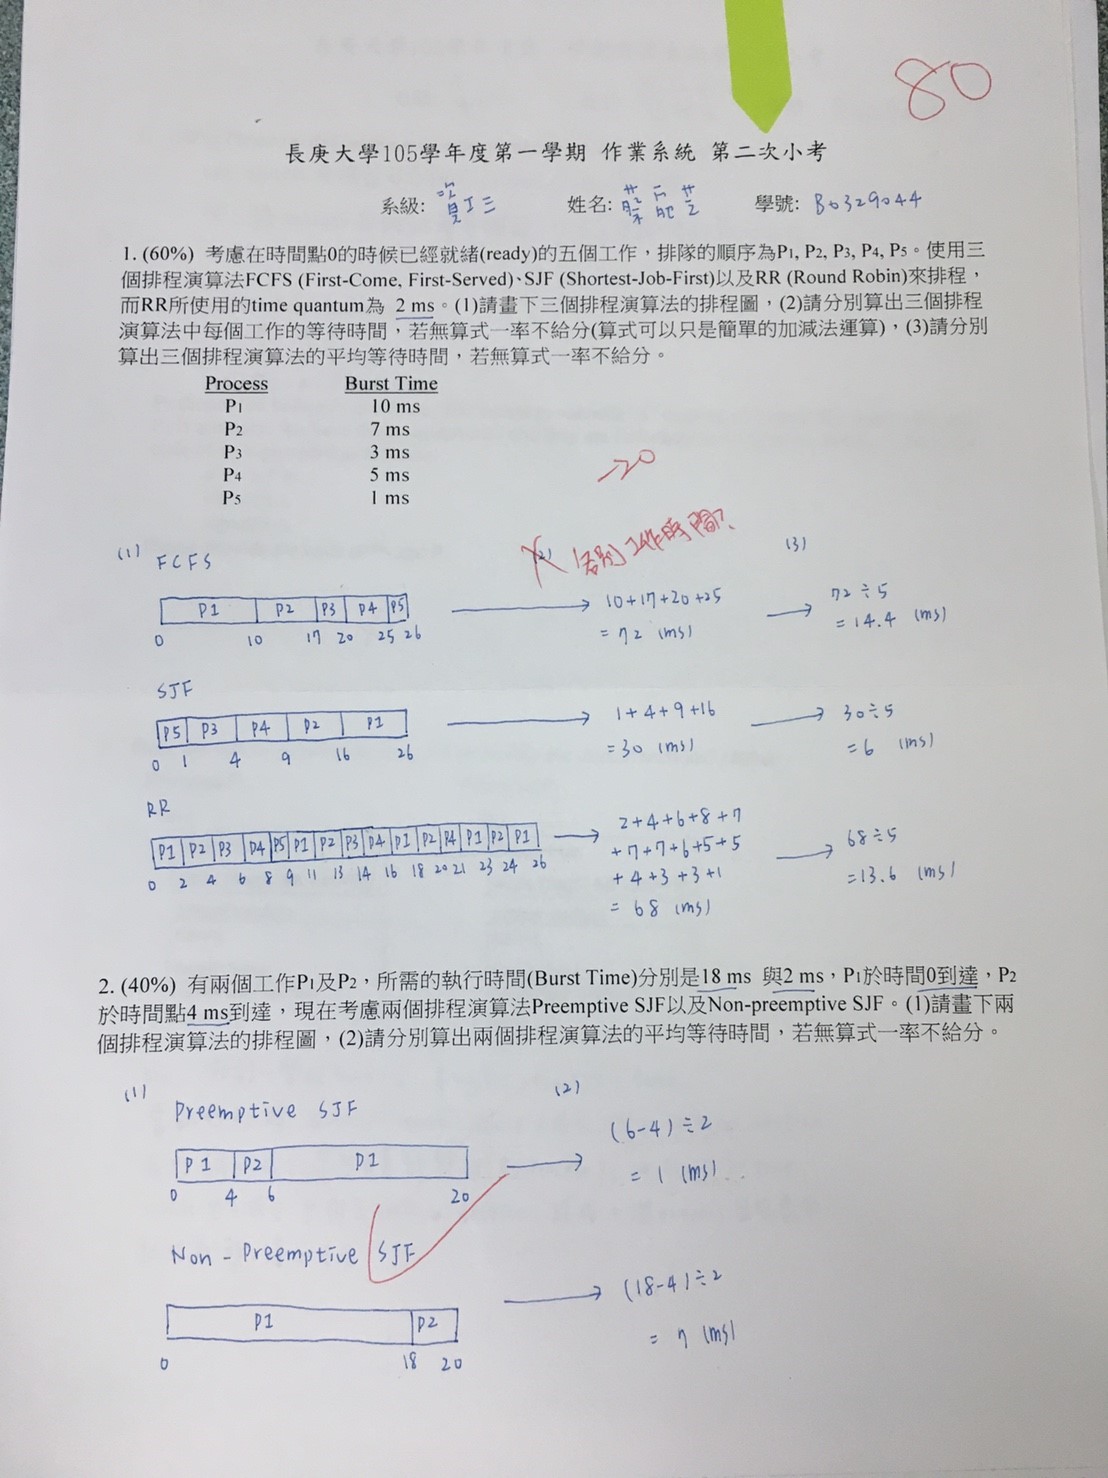 80
長庚大學105學年度第一學期 作業系統 第二次小考
系級: 資工三 姓名: 學號: B0329044
1. (60%) 考慮在時間點0的時候已經就緒(ready)的五個工作，排隊的順序為P1, P2, P3, P4, P5。使用三
個排程演算法FCFS (First-Come, First-Served)、SJF (Shortest-Job-First)以及RR (Round Robin)來排程，
而RR所使用的time quantum為 2 ms。(1)請畫下三個排程演算法的排程圖，(2)請分別算出三個排程
演算法中每個工作的等待時間，若無算式一率不給分(算式可以只是簡單的加減法運算)，(3)請分別
算出三個排程演算法的平均等待時間，若無算式一率不給分。
Process Burst Time
P1 10 ms
P2 7 ms
P3 3 ms
P4 5 ms
P5 1 ms
-20
(1) FCFS (2) 個別工作時間? (3)
P1 P2 P3 P4 P5 10+17+20+25 72÷5
0 10 17 20 25 26 = 72 (ms) = 14.4 (ms)
SJF
P5 P3 P4 P2 P1 1+4+9+16 30÷5
0 1 4 9 16 26 =30 (ms) =6 (ms)
RR
P1 P2 P3 P4 P5 P1 P2 P3 P4 P1 P2 P4 P1 P2 P1
0 2 4 6 8 9 11 13 14 16 18 20 21 23 24 26
2+4+6+8+7
+7+7+6+5+5 68÷5
+4+3+3+1 =13.6 (ms)
= 68 (ms)
2. (40%) 有兩個工作P1及P2，所需的執行時間(Burst Time)分別是18 ms 與2 ms，P1於時間0到達，P2
於時間點4 ms到達，現在考慮兩個排程演算法Preemptive SJF以及Non-preemptive SJF。(1)請畫下兩
個排程演算法的排程圖，(2)請分別算出兩個排程演算法的平均等待時間，若無算式一率不給分。
(1) (2)
Preemptive SJF
P1 P2 P1 (6-4)÷2
0 4 6 20 = 1 (ms)
Non-Preemptive SJF
P1 P2 (18-4)÷2
0 18 20 = 7 (ms)